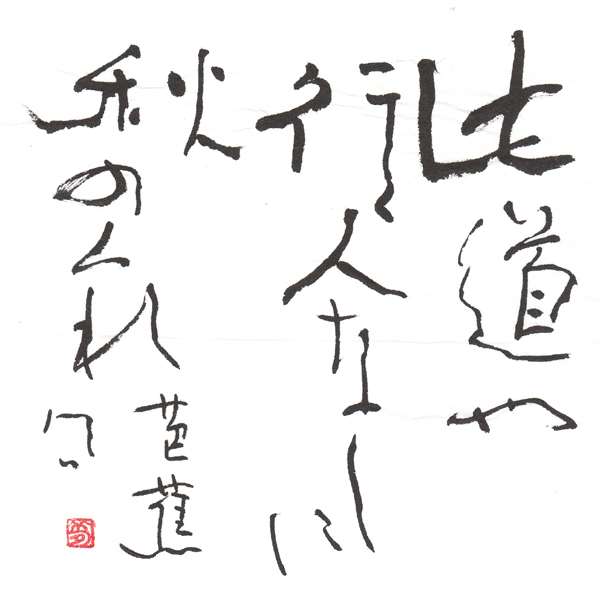 此道や
行人なしに
秋のくれ
芭蕉
句